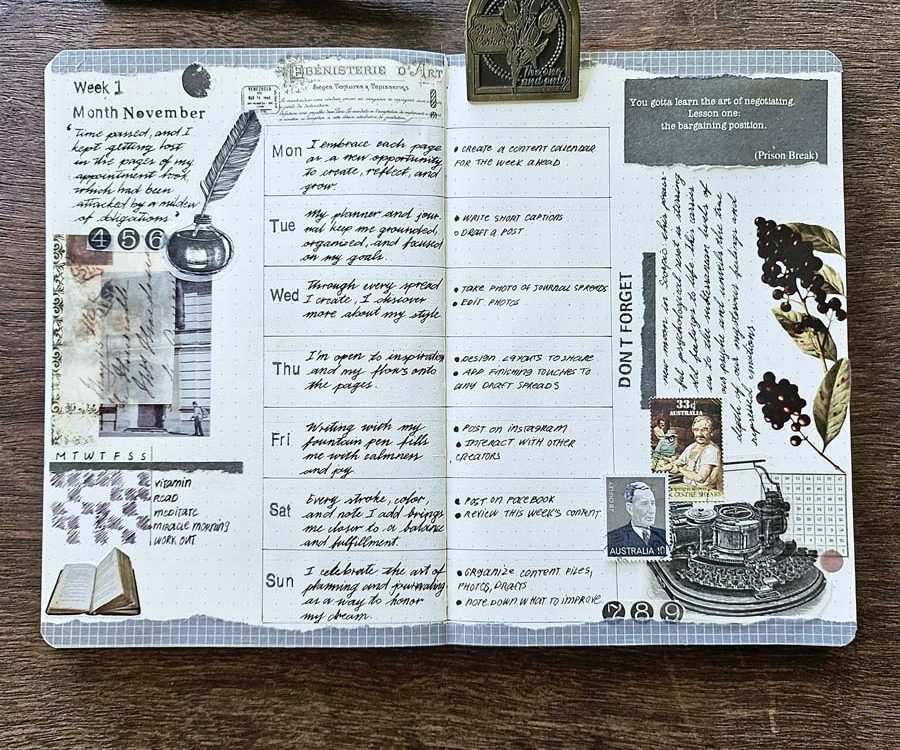 Week 1
Month November
"Time passed, and I
kept getting lost
in the pages of my
appointment book,
which had been
attacked by a
of obligations"
4 5 6
M T W T F S S
vitamin
READ
meditate
MIRACLE MORNING
WORK OUT
ÉBÉNISTERIE D'ART
Sieges Tentures & Tapisseries
VENEZUELA
Mon
I embrace each page
as a new opportunity
to create, reflect, and
grow.
Tue
My planner and jour-
nal keep me grounded,
organized, and focused
on my goals.
Wed
Through every spread
I create, I discover
more about my style
Thu
I'm open to inspiration
and my flows onto
the pages.
Fri
Writing with my
fountain pen fills
me with calmness
and joy.
Sat
Every stroke, color,
and note I add brings
me closer to a balance
and fulfillment.
Sun
I celebrate the art of
planning and journaling
as a way to honor
my dream.
The one
and only
• CREATE A CONTENT CALENDAR
FOR THE WEEK AHEAD
• WRITE SHORT CAPTIONS
• DRAFT A POST
• TAKE PHOTO OF JOURNAL SPREADS
• EDIT PHOTOS
• DESIGN LAYOUTS TO SHARE
• ADD FINISHING TOUCHES TO
ANY DRAFT SPREADS
• POST ON INSTAGRAM
• INTERACT WITH OTHER
CREATORS
• POST ON FACEBOOK
• REVIEW THIS WEEK'S CONTENT
• ORGANIZE CONTENT FILES,
PHOTOS, DRAFTS
• NOTE DOWN WHAT TO IMPROVE
You gotta learn the art of negotiating.
Lesson one:
the bargaining position.
(Prison Break)
DON'T FORGET
new moon in Scorpio this power-
ful psychological reset is stirring
old feelings to life this carries
us to the subterranean levels of
our psyche and unveils the true
depth of our mysterious feelings and
repressed emotions
33c
AUSTRALIA
J B CHIFLEY
AUSTRALIA 10
7 8 9